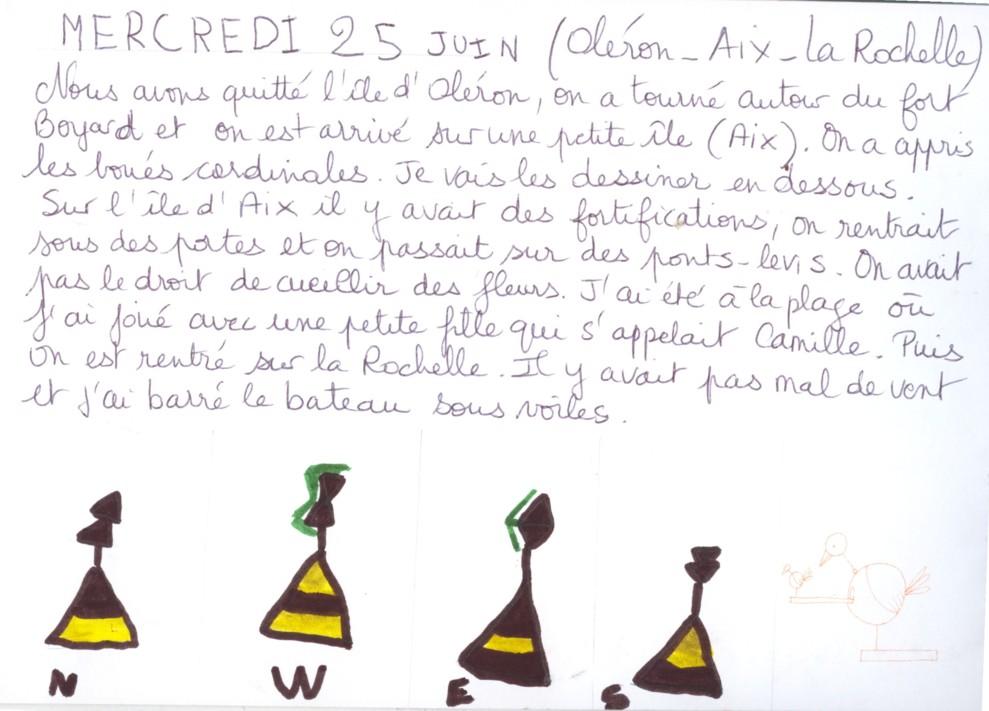 MERCREDI 25 JUIN (Oléron - Aix - La Rochelle)
Nous avons quitté l'île d'Oléron, on a tourné autour du fort
Boyard et on est arrivé sur une petite île (Aix). On a appris
les boués cardinales. Je vais les dessiner en dessous.
Sur l'île d'Aix il y avait des fortifications, on rentrait
sous des portes et on passait sur des ponts-levis. On avait
pas le droit de cueillir des fleurs. J'ai été à la plage où
j'ai joué avec une petite fille qui s'appelait Camille. Puis
on est rentré sur la Rochelle. Il y avait pas mal de vent
et j'ai barré le bateau sous voiles.
N W E S